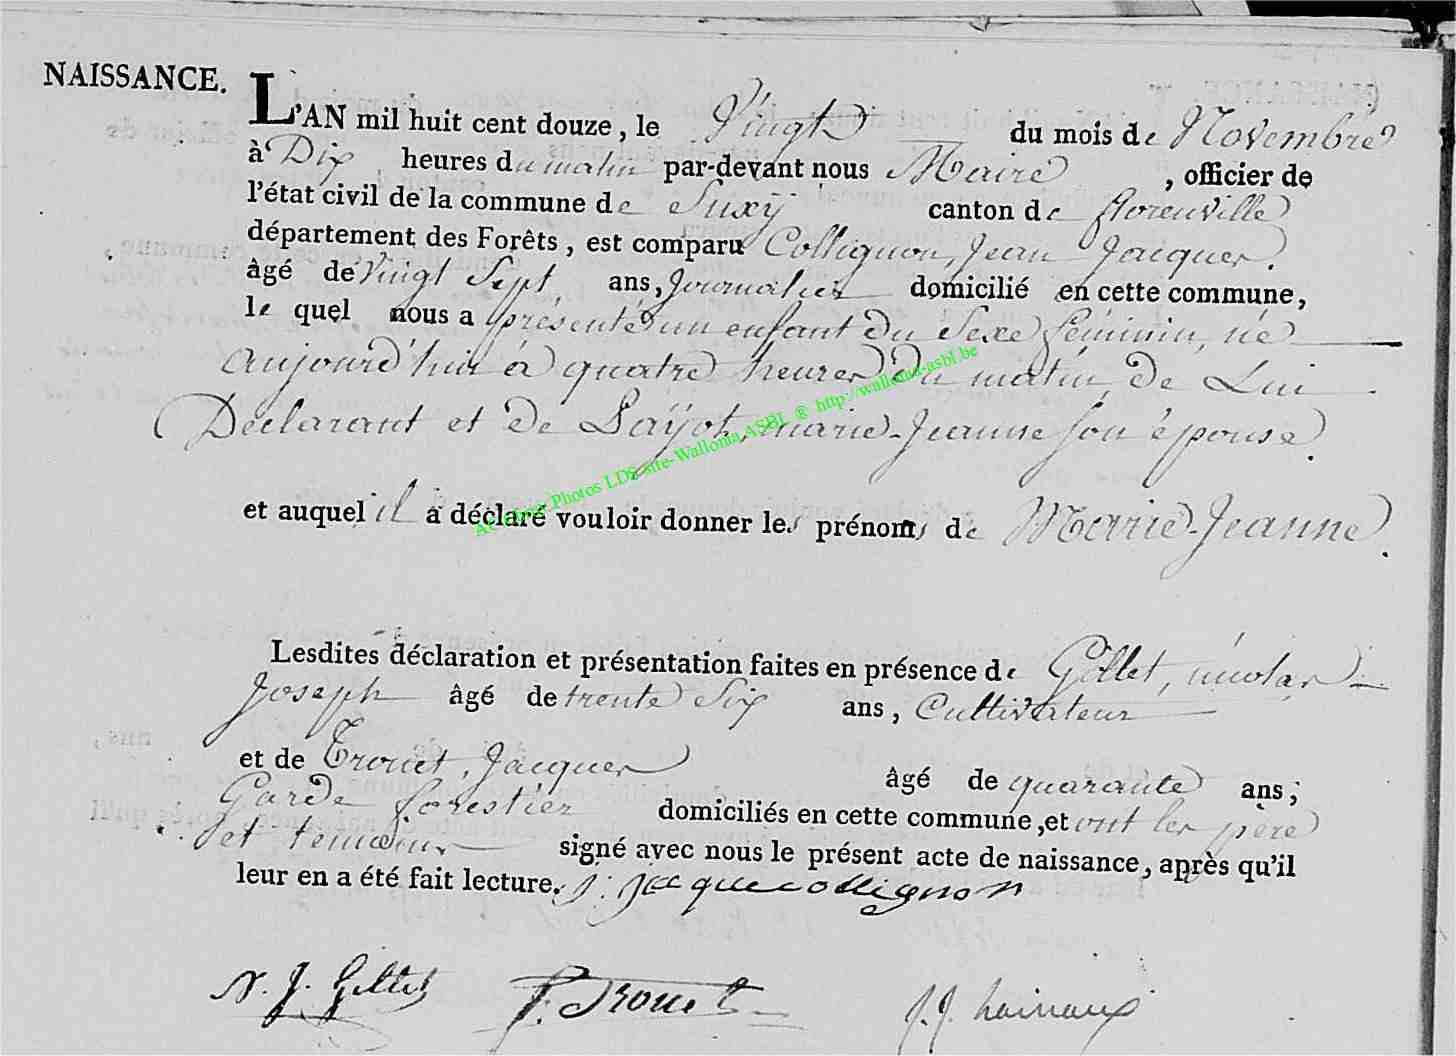 NAISSANCE.
L'AN mil huit cent douze, le Vingt du mois de Novembre
à Dix heures du matin par-devant nous Maire, officier de
l'état civil de la commune de Suxÿ canton de florenville
département des Forêts, est comparu Collignon, Jean Jacques.
âgé de Vingt Sept ans, Journalier domicilié en cette commune,
le quel nous a présenté un enfant du Sexe féminin, né
aujourd'hui à quatre heures du matin, de Lui
Déclarant et de Paÿot, marie-Jeanne son épouse.
et auquel il a déclaré vouloir donner les prénoms de Marie-Jeanne.
Archives Photos LDS site-Wallonia ASBL ® http://wallonia-asbl.be
Lesdites déclaration et présentation faites en présence de Gillet, nicolas
Joseph âgé de trente Six ans, Cultivateur
et de Trouet, Jacques âgé de quarante ans;
Garde forestier domiciliés en cette commune, et ont les père
et temoins signé avec nous le présent acte de naissance, après qu'il
leur en a été fait lecture. J: jacque collignon
N. J. Gillet J. Trouet J. J. hainaux